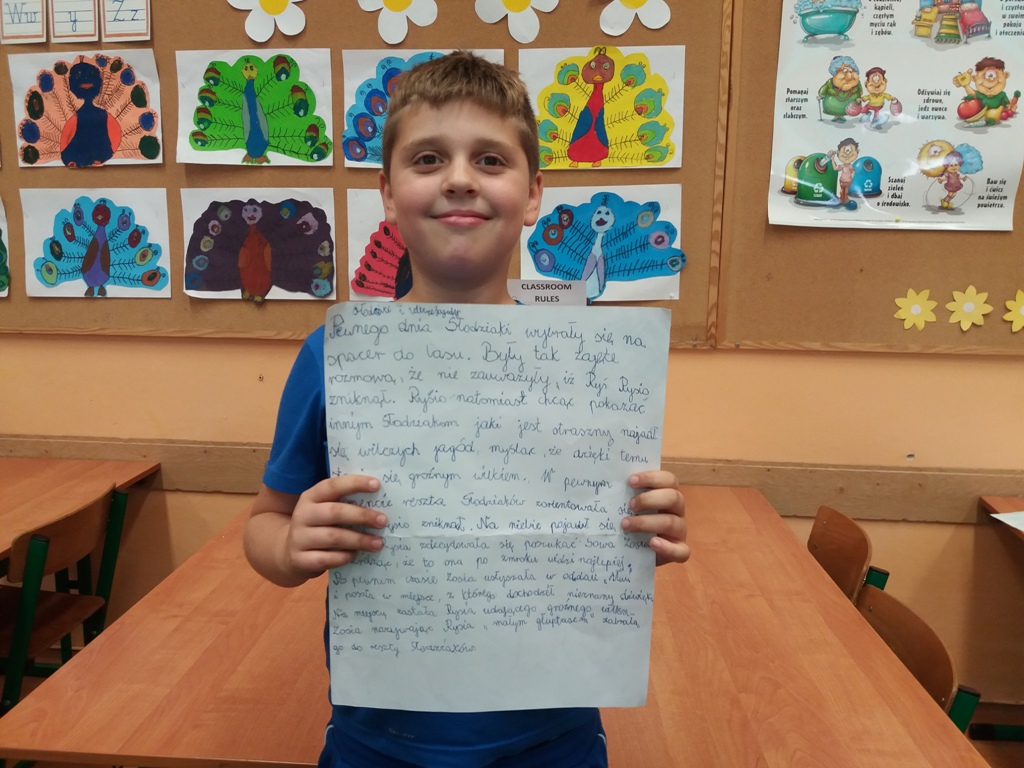 Ww
y
Zz
kąpieli,
częstym
myciu rąk
i zębów.
i czystość
w swoim
pokoju
i otoczeniu
Pomagaj
starszym
oraz
słabszym.
Odżywiaj się
zdrowo,
jedz owoce
i warzywa.
Szanuj
zieleń
i dbaj
o środowisko.
Baw się
i ćwicz
na świeżym
powietrzu.
CLASSROOM
RULES
Pewnego dnia Słodziaki wybrały się na
spacer do lasu. Były tak zajęte
rozmową, że nie zauważyły, iż Ryś Rysio
zniknął. Rysio natomiast chcąc pokazać
innym Słodziakom jaki jest straszny najadł
się wilczych jagód, myśląc, że dzięki temu
się groźnym wilkiem. W pewnym
reszta Słodziaków zorientowała się
zniknął. Na niebie pojawił się
zdecydowała się poszukać Sowa Zosia
że to ona po zmroku widzi najlepiej.
Po pewnym czasie Zosia usłyszała w oddali
i poszła w miejsce, z którego dochodził nieznany dźwięk.
Na miejscu zastała Rysia udającego groźnego wilka.
Zosia nazywając Rysia „małym głuptasem" zabrała
go do reszty Słodziaków.